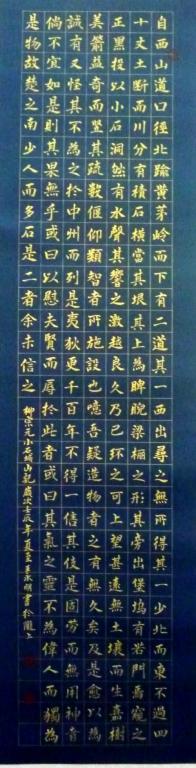 自西山道口徑北踰黃茅嶺而下有二道其一西出尋之無所得其一少北而東不過四
十丈土斷而川分有積石橫當其垠其上為睥睨梁欐之形其旁出堡塢有若門焉窺之
正黑投以小石洞然有水聲其響之激越良久乃已環之可上望甚遠無土壤而生嘉樹
美箭益奇而堅其疏數偃仰類智者所施設也噫吾疑造物者之有無久矣及是愈以為
誠有又怪其不為之於中州而列是夷狄更千百年不得一售其伎是固勞而無用神者
倘不宜如是則其果無乎或曰以慰夫賢而辱於此者或曰其氣之靈不為偉人而獨為
是物故楚之南少人而多石是二者余未信之
柳宗元小石城山記 歲次壬辰年夏至 永明書於隴上